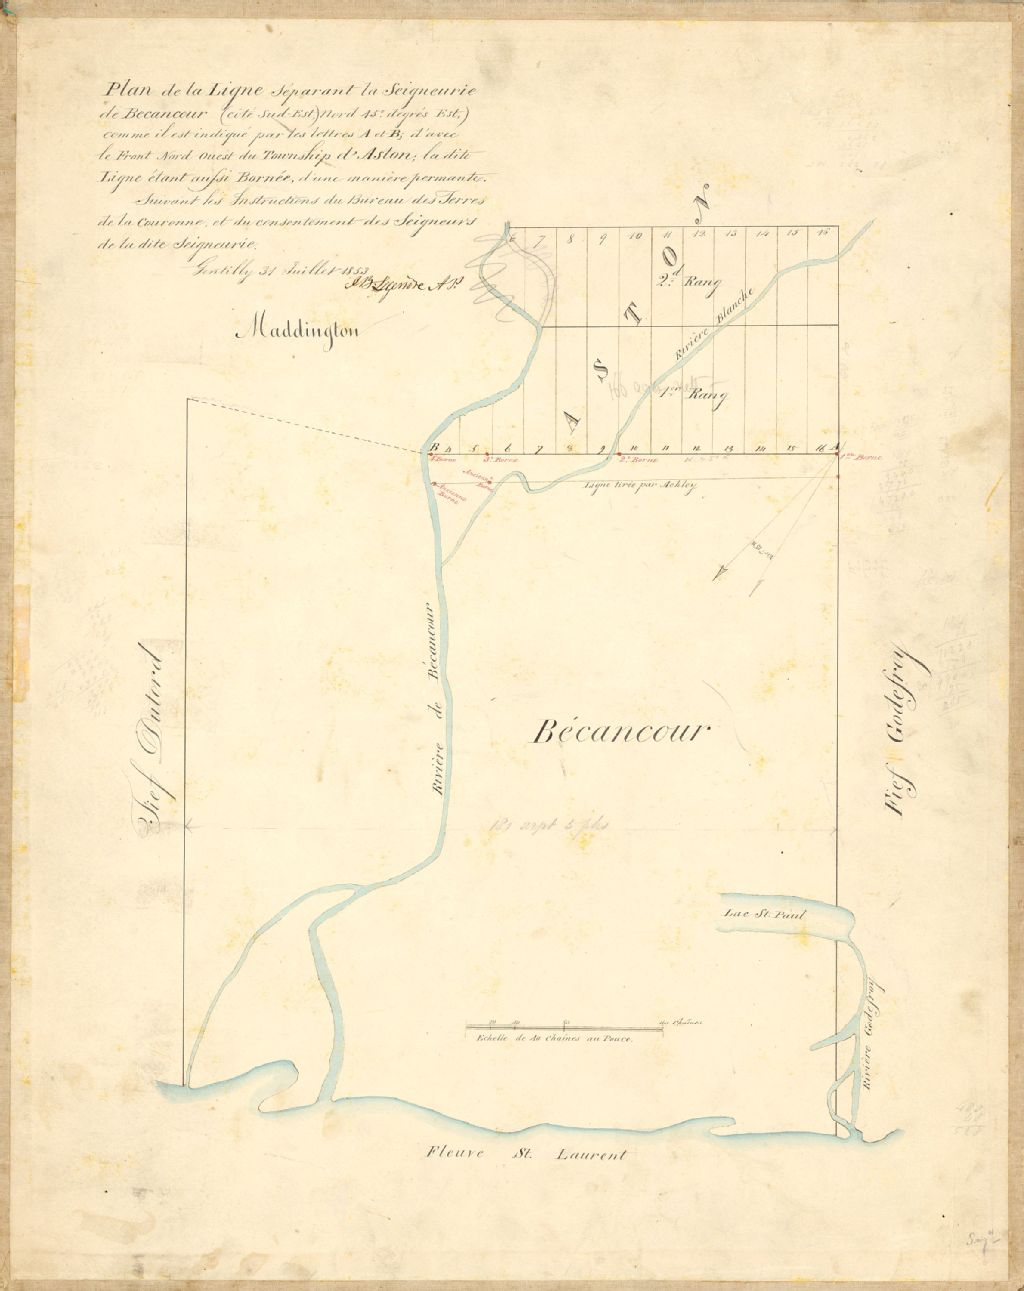 Plan de la Ligne Séparant la Seigneurie
de Becancour (côté Sud-Est) Nord 45° dégrés Est,)
comme il est indiqué par les lettres A et B; d'avec
le Front Nord Ouest du Township d'Aston; la dite
Ligne étant aussi Bornée, d'une manière permante.
Suivant les Instructions du Bureau des Terres
de la Couronne, et du consentement des Seigneurs
de la dite Seigneurie.
Gentilly 31 Juillet 1853
J.B. Legendre A.P.
Maddington
ASTON
6 7 8 9 10 11 12 13 14 15 16
2d. Rang
Rivière Blanche
1er Rang
B 4 5 6 7 8 9 10 11 12 13 14 15 16 A
4e Borne
3e Borne
2e Borne
1ere Borne
Ancienne
Borne
Ancienne
Borne
Ligne tirée par Ackley
Rivière de Bécancour
Fief Dutord
Bécancour
Fief Godefroy
181 arpt 5 phs
Lac St. Paul
Rivière Godefroy
Echelle de 40 Chaines au Pouce.
Fleuve St. Laurent